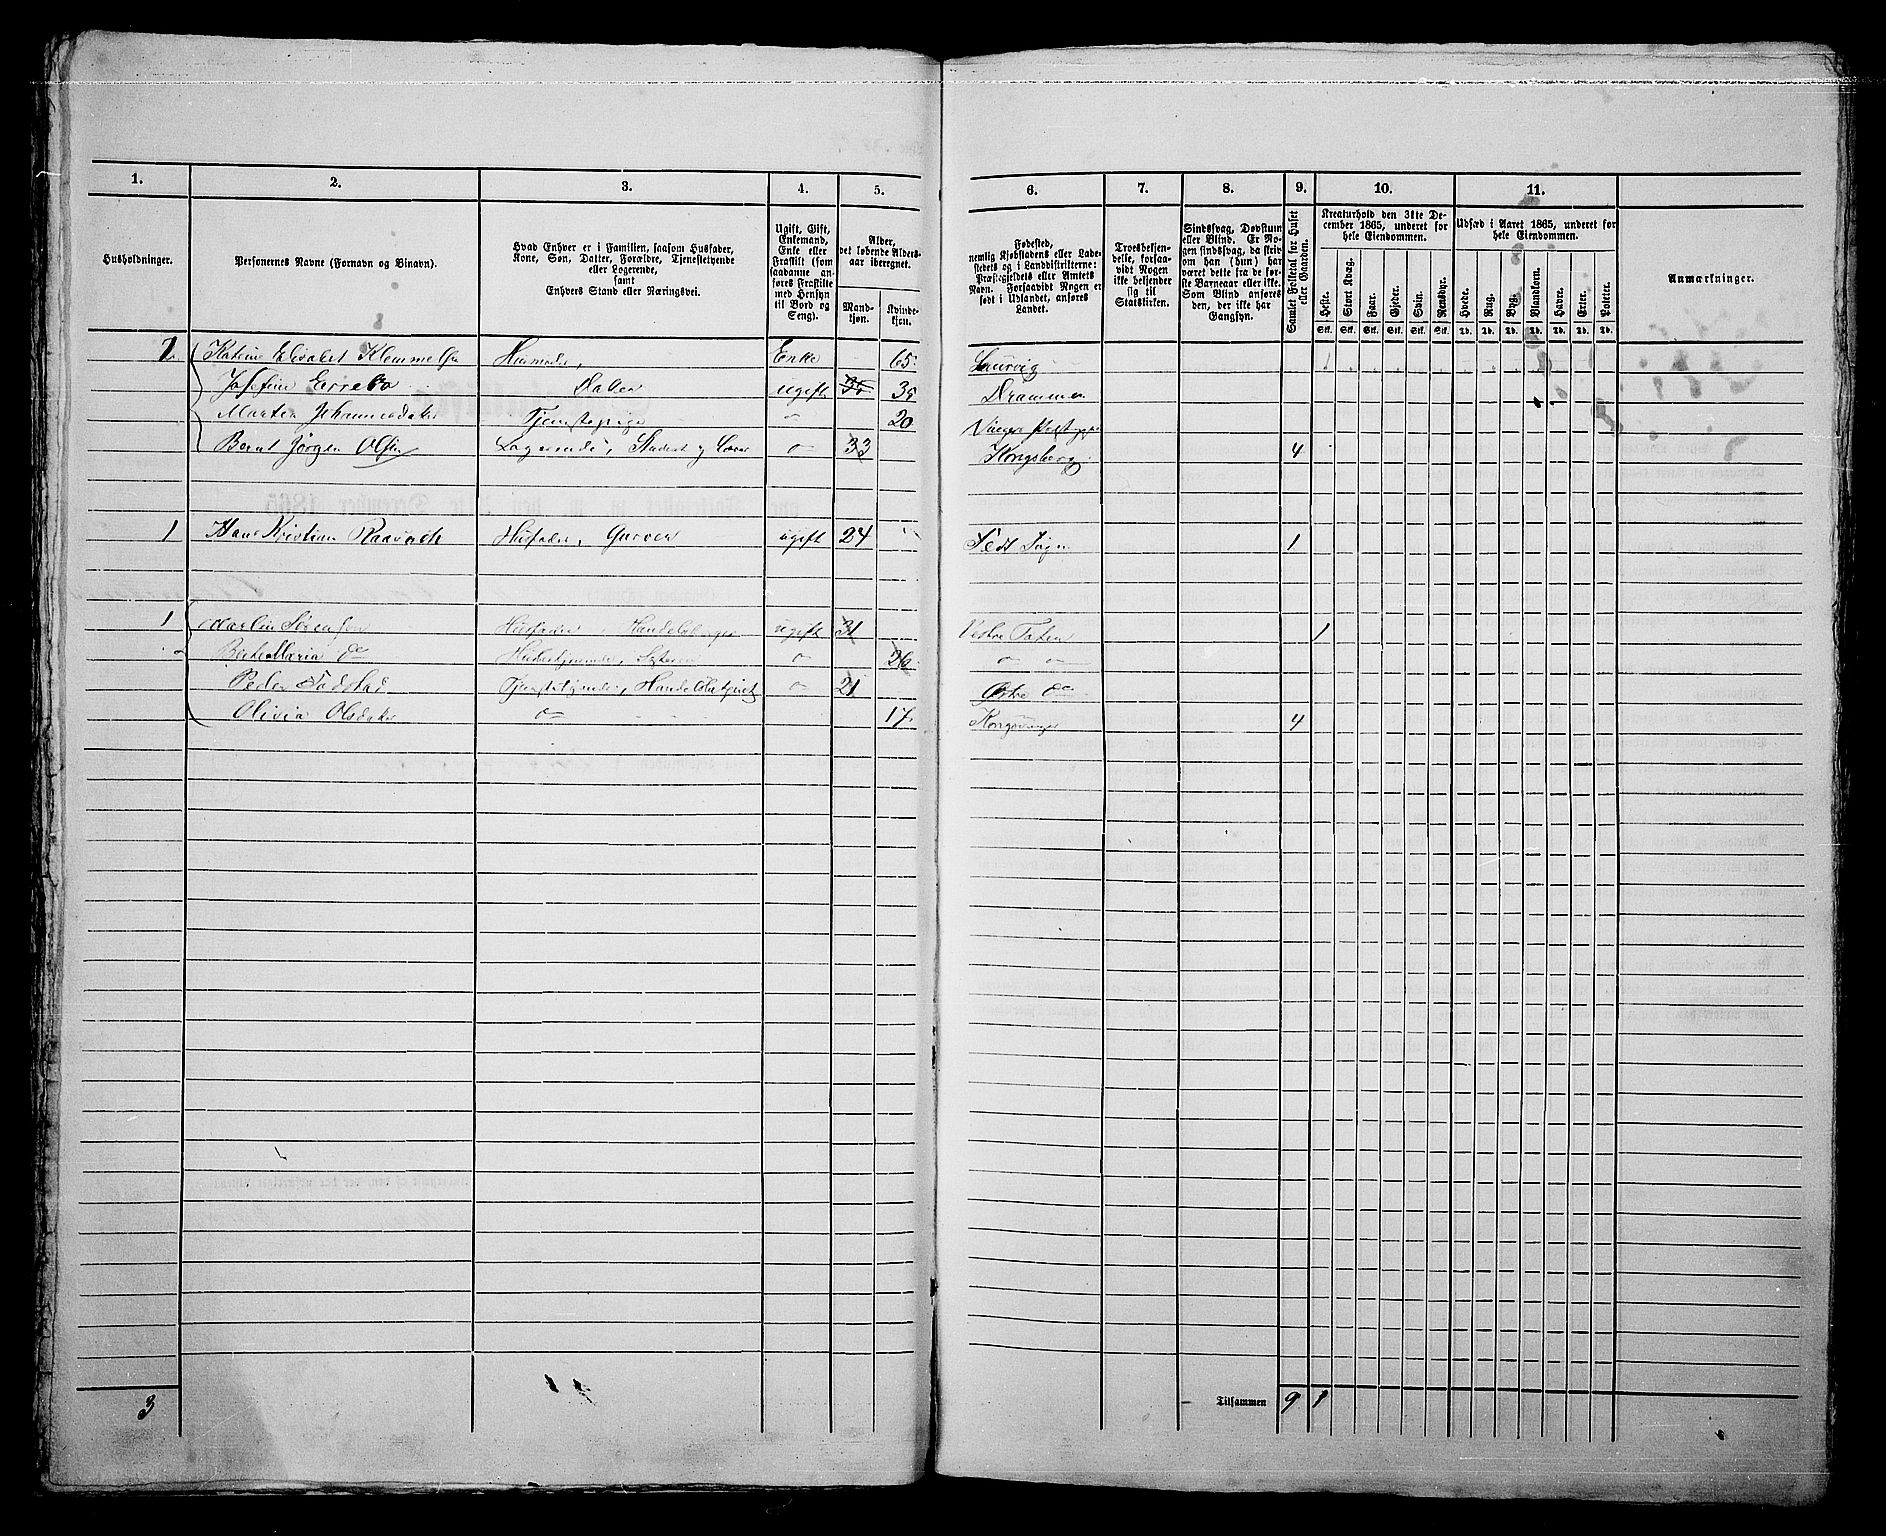 1. 2. 3. 4. 5. 6. 7. 8. 9. 10. 11.
Husholdninger.
Personernes Navne (Fornavn og Binavn).
Hvad Enhver er i Familien, saasom Husfader,
Kone, Søn, Datter, Forældre, Tjenestetyende
eller Logerende,
samt
Enhvers Stand eller Næringsvei.
Ugift, Gift,
Enkemand,
Enke eller
Fraskilt (som
saadanne an-
føres Fraskilte
med Hensyn
til Bord og
Seng).
Alder,
det løbende Alders-
aar iberegnet.
Mand-
kjøn.
Kvinde-
kjøn.
Fødested,
nemlig Kjøbstadens eller Lade-
stedets og i Landdistrikterne:
Præstegjeldets eller Amtets
Navn. Forsaavidt Nogen er
født i Udlandet, anføres
Landet.
Troesbekjen-
delse, forsaa-
vidt Nogen
ikke bekjender
sig til
Statskirken.
Sindssvag, Døvstum
eller Blind. Er No-
gen sindssvag, da skriv
om han (hun) har
været dette fra de før-
ste Barneaar eller ikke.
Som Blind anføres
den, der ikke har
Gangsyn.
Samlet Folketal for Huset
eller Gaarden.
Kreaturhold den 31te De-
cember 1865, underet for
hele Eiendommen.
Heste. Stort Kvæg. Faar. Gjeder. Svin. Rensdyr.
Stk. Stk. Stk. Stk. Stk. Stk.
Udsæd i Aaret 1865, underet for
hele Eiendommen.
Hvede. Rug. Byg. Blandkorn. Havre. Erter. Poteter.
Td. Td. Td. Td. Td. Td. Td.
Anmærkninger.
1 Katrine Elisabet Klemmelsen Husmoder, Enke 65 Laurvig
Josefine Errebo Datter ugift 35 39 Drammen
Marten Johannesdatter Tjenstepige 〃 20
Bernt Jørgen Olsen Logerende, Student og Lærer 〃 33 Kongsberg 4
1 Hans Kristian Husfader, Garver ugift 24 1
1 Martin Sørensen Husfader, ugift 31 Vestre Toten 1
Berte Maria do Søster 〃 26 〃 〃
Peder 〃 21 Østre do
Olivia Olsdatter 〃 17 Kongsvinger 4
3 Tilsammen 9 1